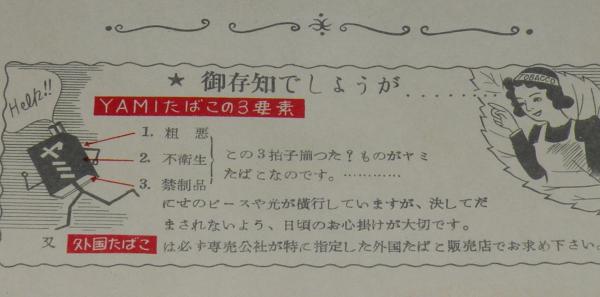 ★ 御存知でしようが........
Help!!
TOBACCO
YAMIたばこの3要素
ヤミ
1. 粗悪
2. 不衛生
3. 禁制品
この3拍子揃つた?ものがヤミ
たばこなのです。…………
にせのピースや光が横行していますが、決してだ
まされないよう、日頃のお心掛けが大切です。
又 外国たばこ は必ず専売公社が特に指定した外国たばこ販売店でお求め下さい。